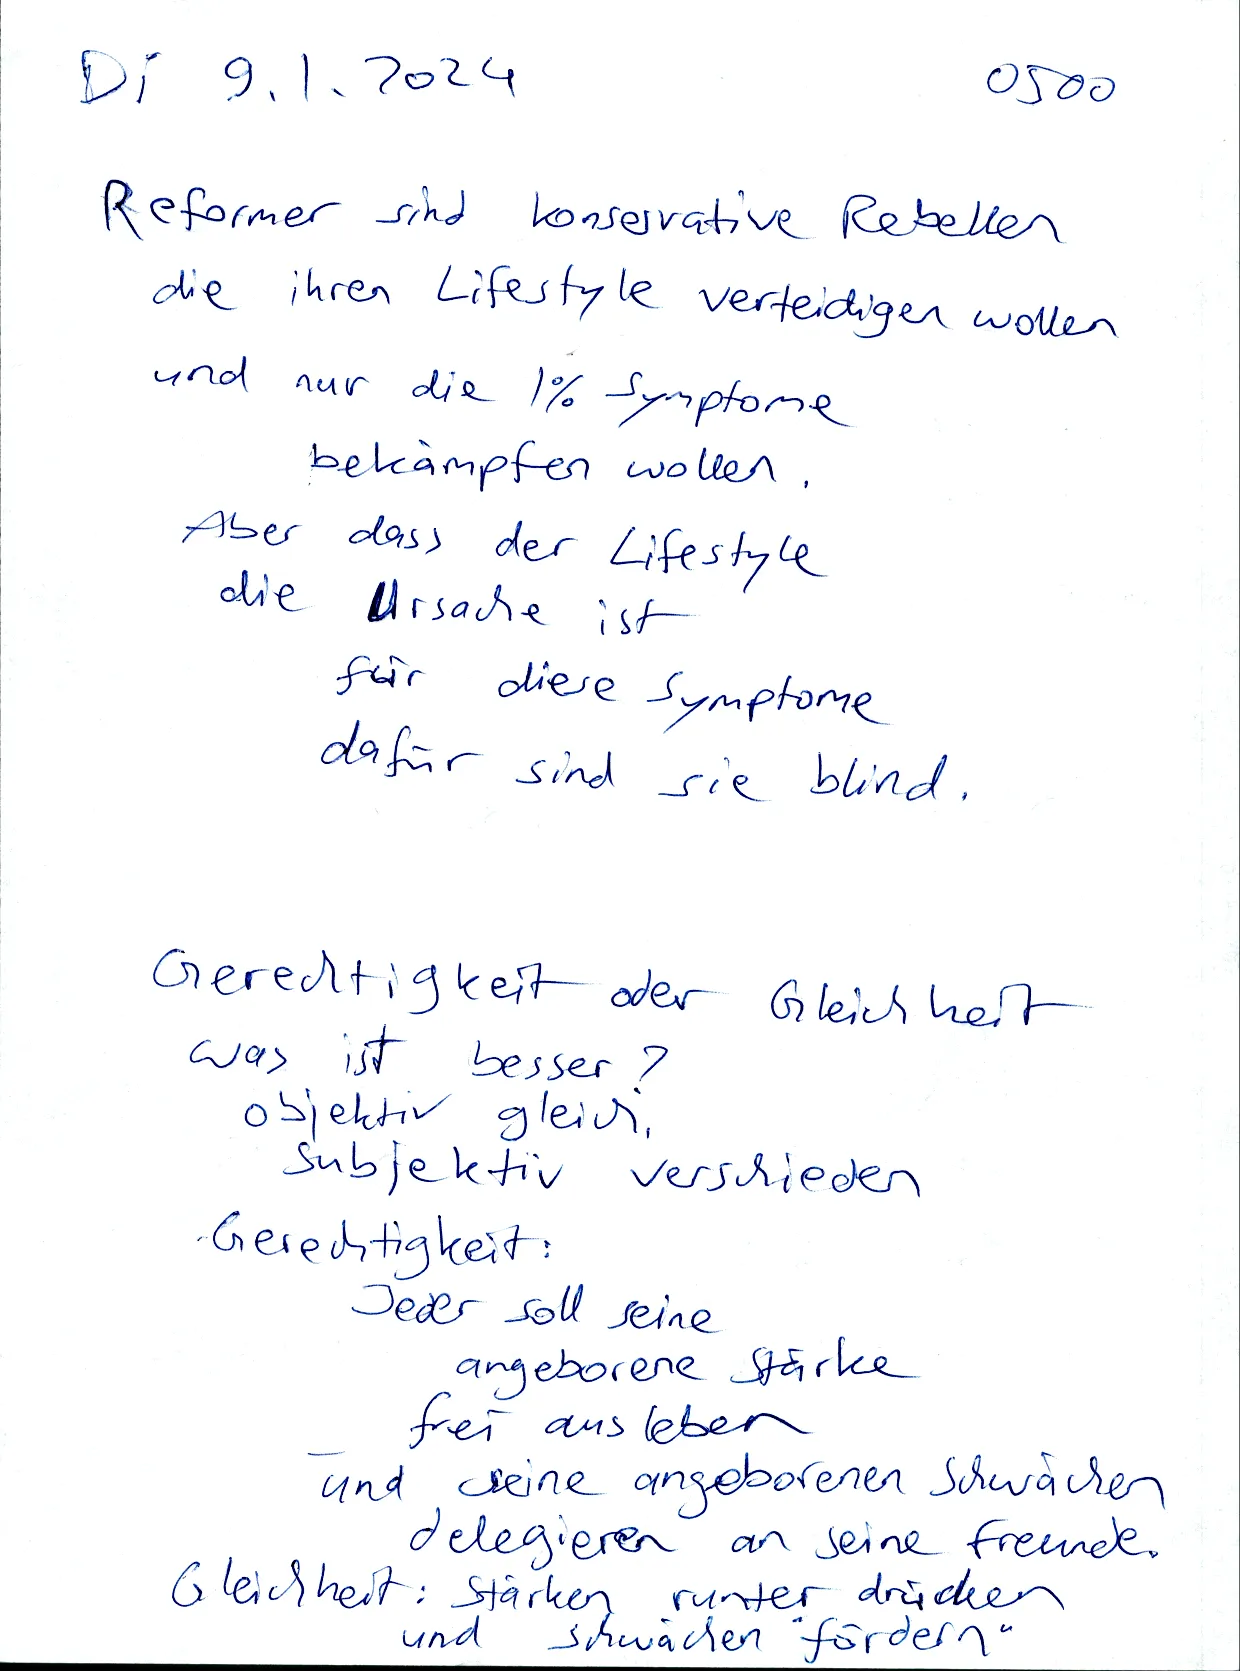 Di 9.1.2024 0500
Reformer sind konservative Rebellen
die ihren Lifestyle verteidigen wollen
und nur die 1% Symptome
bekämpfen wollen.
Aber dass der Lifestyle
die Ursache ist
für diese Symptome
dafür sind sie blind.
Gerechtigkeit oder Gleichheit
was ist besser?
objektiv gleich,
subjektiv verschieden
Gerechtigkeit:
Jeder soll seine
angeborene Stärke
frei ausleben
und seine angeborenen Schwächen
delegieren an seine Freunde.
Gleichheit: Stärken runter drücken
und schwächen "fördern"